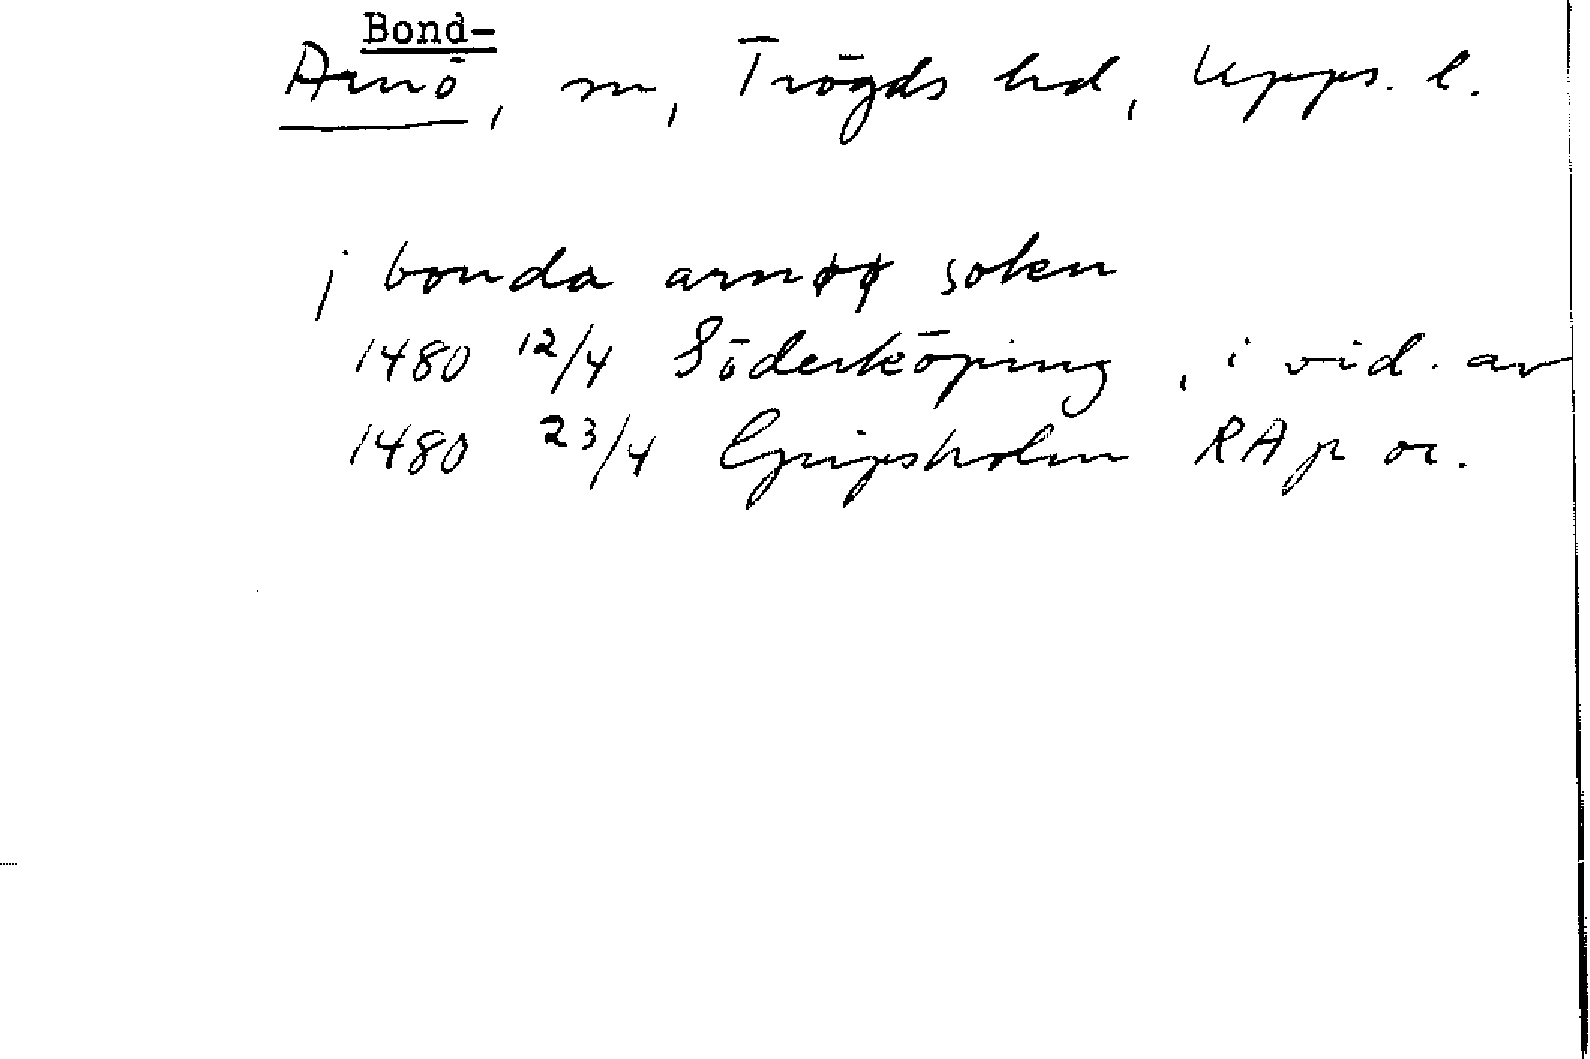 Bond-
Arnö, sn, Trögds hd, Upps. l.
j bonda arnøø soken
1480 12/4 Söderköping, i vid. av
1480 23/4 Gripsholm RA p or.